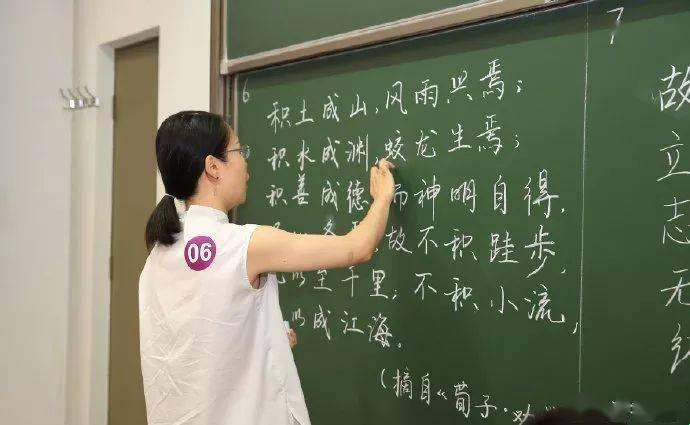 6
积土成山,风雨兴焉;
积水成渊,蛟龙生焉;
积善成德,而神明自得,
故不积跬步,
以至千里;不积小流,
以成江海。
(摘自《荀子·
7
故
立
志
无
06